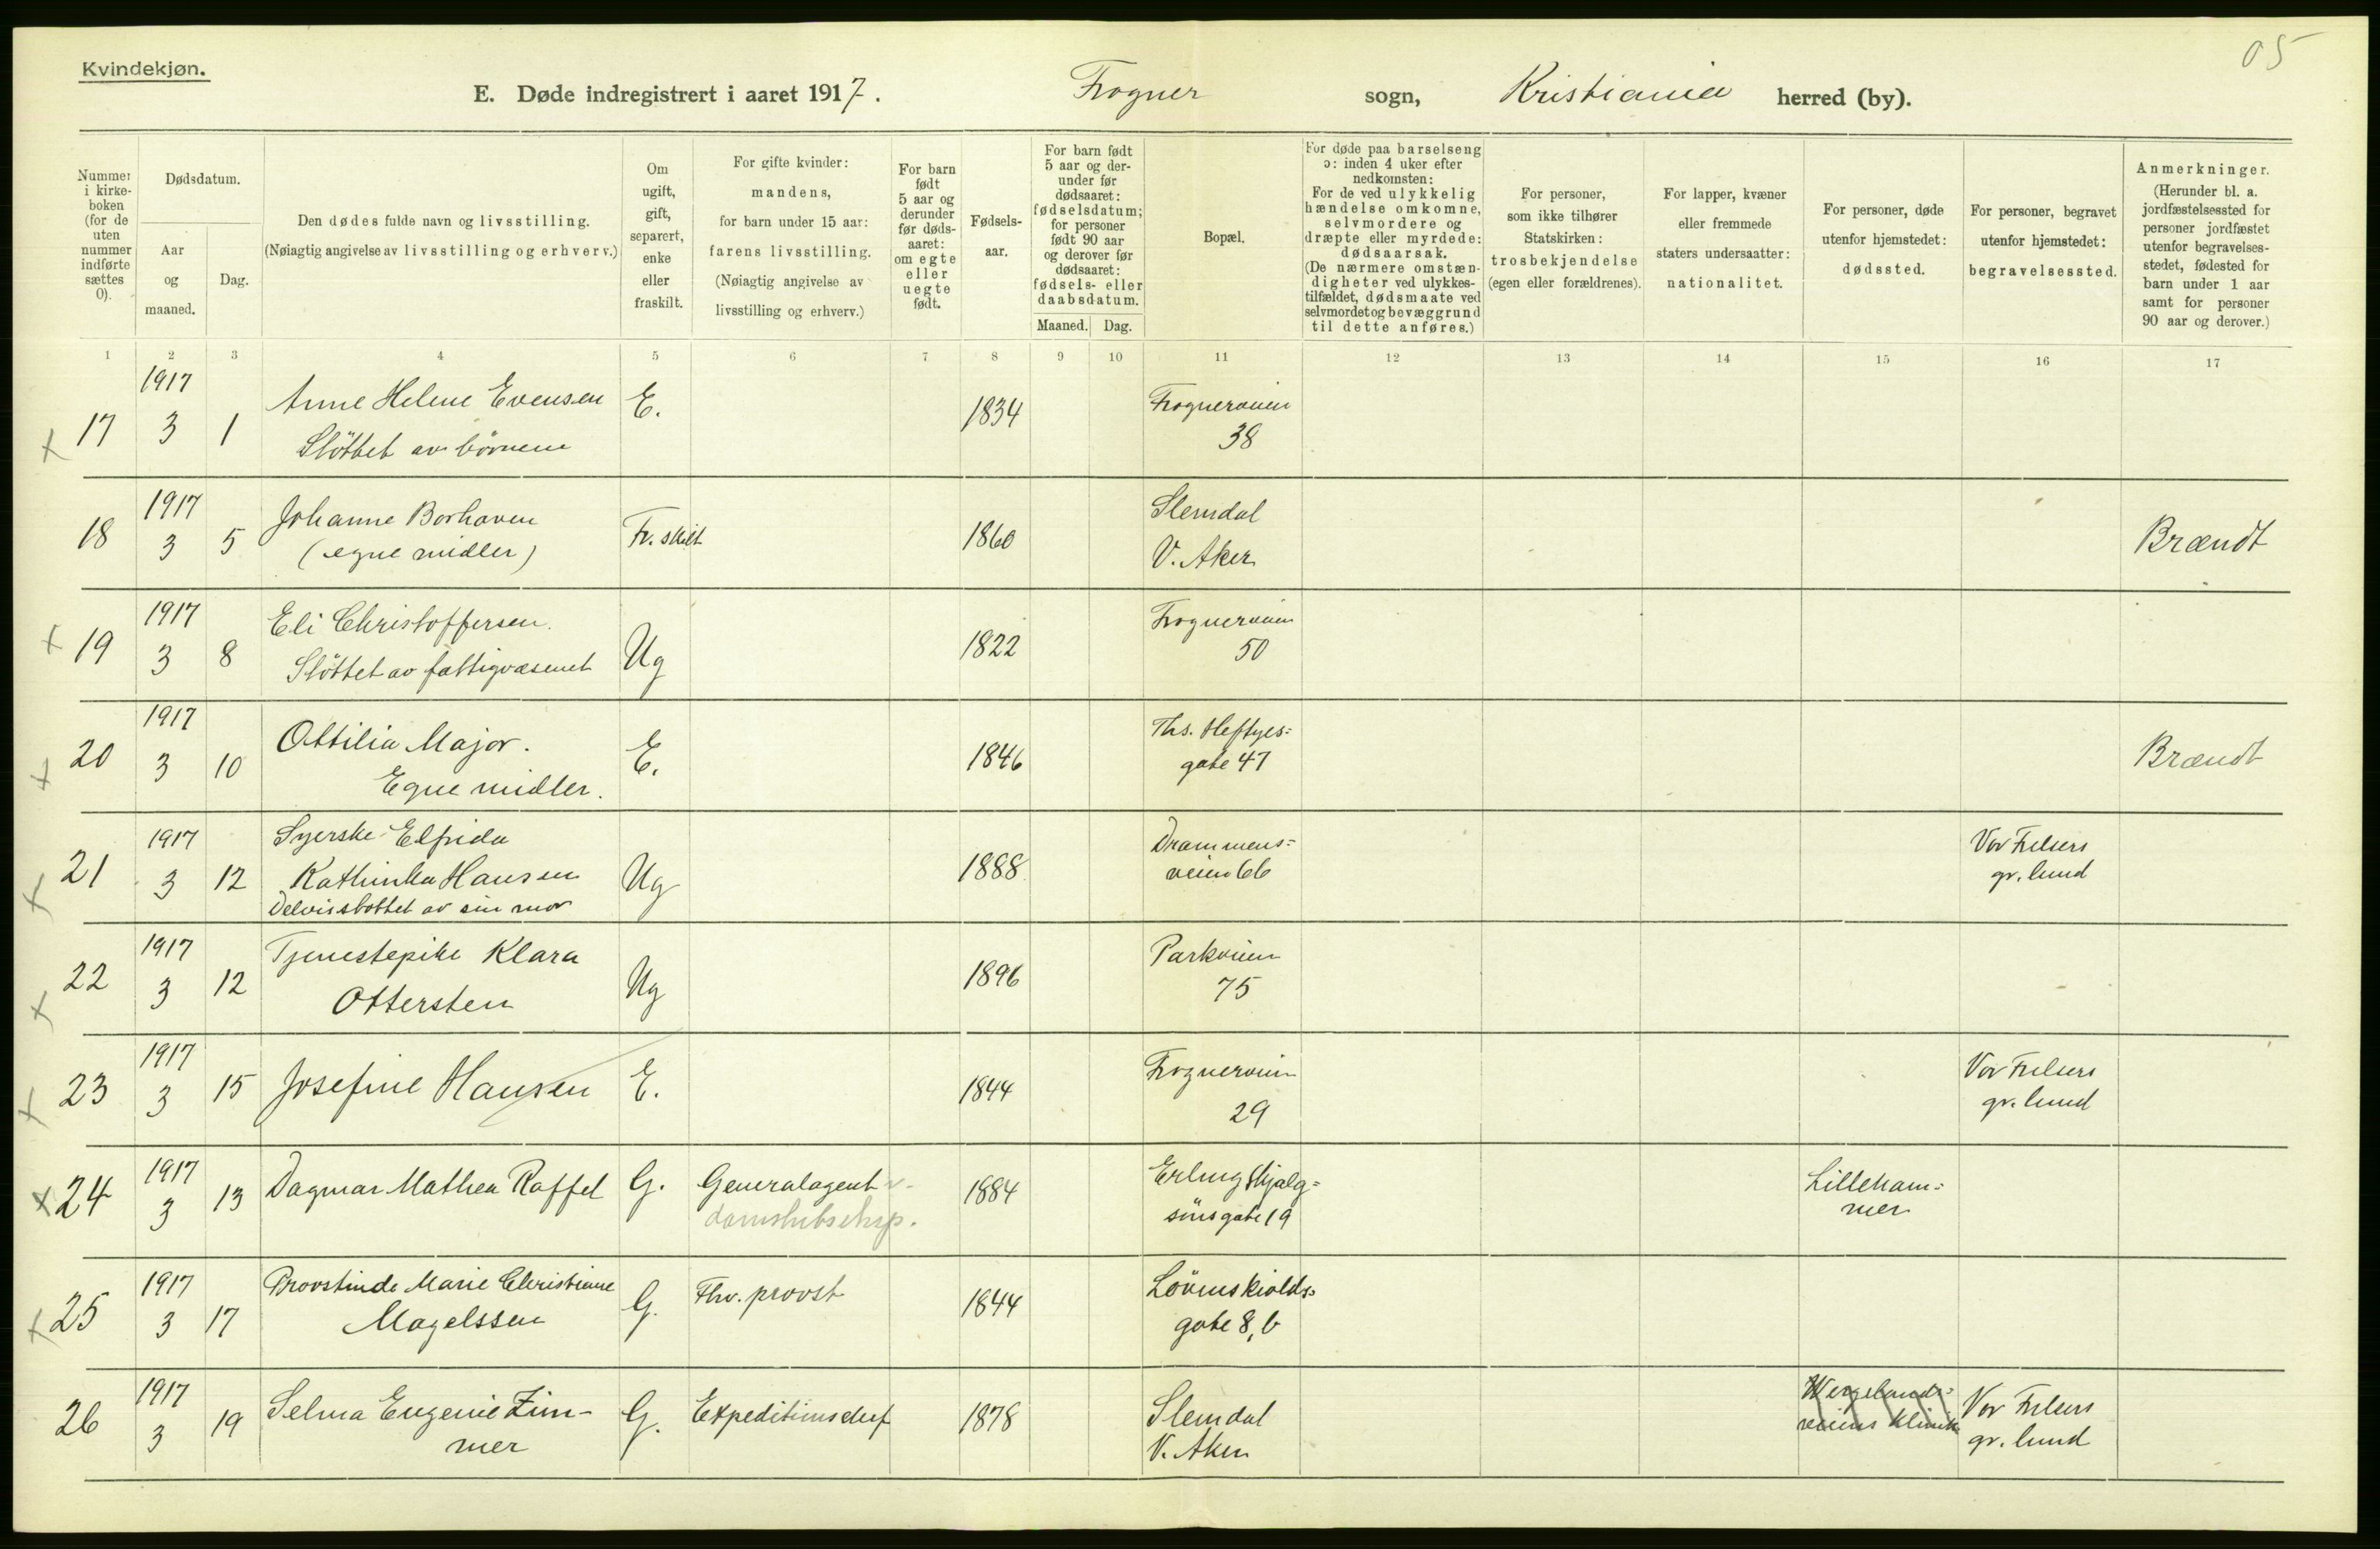 05
Kvindekjøn.
E. Døde indregistrert i aaret 1917. Frogner sogn, Kristiania herred (by).
Nummer i kirkeboken (for de uten nummer indførte sættes 0).
Dødsdatum.
Aar og maaned.
Dag.
Den dødes fulde navn og livsstilling.
(Nøiagtig angivelse av livsstilling og erhverv.)
Om ugift, gift, separert, enke eller fraskilt.
For gifte kvinder: mandens, for barn under 15 aar: farens livsstilling. (Nøiagtig angivelse av livsstilling og erhverv.)
For barn født 5 aar og derunder før dødsaaret: om egte eller uegte født.
Fødselsaar.
For barn født 5 aar og derunder før dødsaaret: fødselsdatum; for personer født 90 aar og derover før dødsaaret: fødsels- eller daabsdatum.
Maaned. Dag.
Bopæl.
For døde paa barselseng ɔ: inden 4 uker efter nedkomsten: For de ved ulykkelig hændelse omkomne, selvmordere og dræpte eller myrdede: dødsaarsak. (De nærmere omstændigheter ved ulykkestilfældet, dødsmaate ved selvmordet og bevæggrund til dette anføres.)
For personer, som ikke tilhører Statskirken: trosbekjendelse (egen eller forældrenes).
For lapper, kvæner eller fremmede staters undersaatter: nationalitet.
For personer, døde utenfor hjemstedet: dødssted.
For personer, begravet utenfor hjemstedet: begravelsessted.
Anmerkninger. (Herunder bl. a. jordfæstelsessted for personer jordfæstet utenfor begravelsesstedet, fødested for barn under 1 aar samt for personer 90 aar og derover.)
1 2 3 4 5 6 7 8 9 10 11 12 13 14 15 16 17
17 1917 3 1 Anne Helene Evensen E. 1834 Frogneveien 38
Støttet av børnene
18 1917 3 5 Johanne Borhaven Fr. skilt 1860 Slemdal V. Aker Brændt
(egne midler)
19 1917 3 8 Eli Christoffersen. Ug 1822 Frognerveien 50
Støttet av fattigvæsenet
20 1917 3 10 Ottilia Major. E. 1846 Ths. Heftyes= gate 47 Brændt
Egne midler.
21 1917 3 12 Syerske Elfrida Ug 1888 Drammens= veien 66 Vor Frelsers gr. lund
Kathinka Hansen
Delvis støttet av sin mor
22 1917 3 12 Tjenestepike Klara Ug 1896 Parkveien 75
Ottersten
23 1917 3 15 Josefine Hansen E. 1844 Frognerveien 29 Vor Frelsers gr. lund
24 1917 3 13 Dagmar Mathea Raffel G. Generalagent 1884 Erling Skjalg= søns gate 19 Lilleham= mer
25 1917 3 17 Provstinde Marie Christiane G. Fhv. provst 1844 Løvenskiolds= gate 8, b
Magelssen
26 1917 3 19 Selma Eugenie Zim- G. Expeditionschef 1878 Slemdal V. Aker Wergelands= veiens klinik Vor Frelsers gr. lund
mer